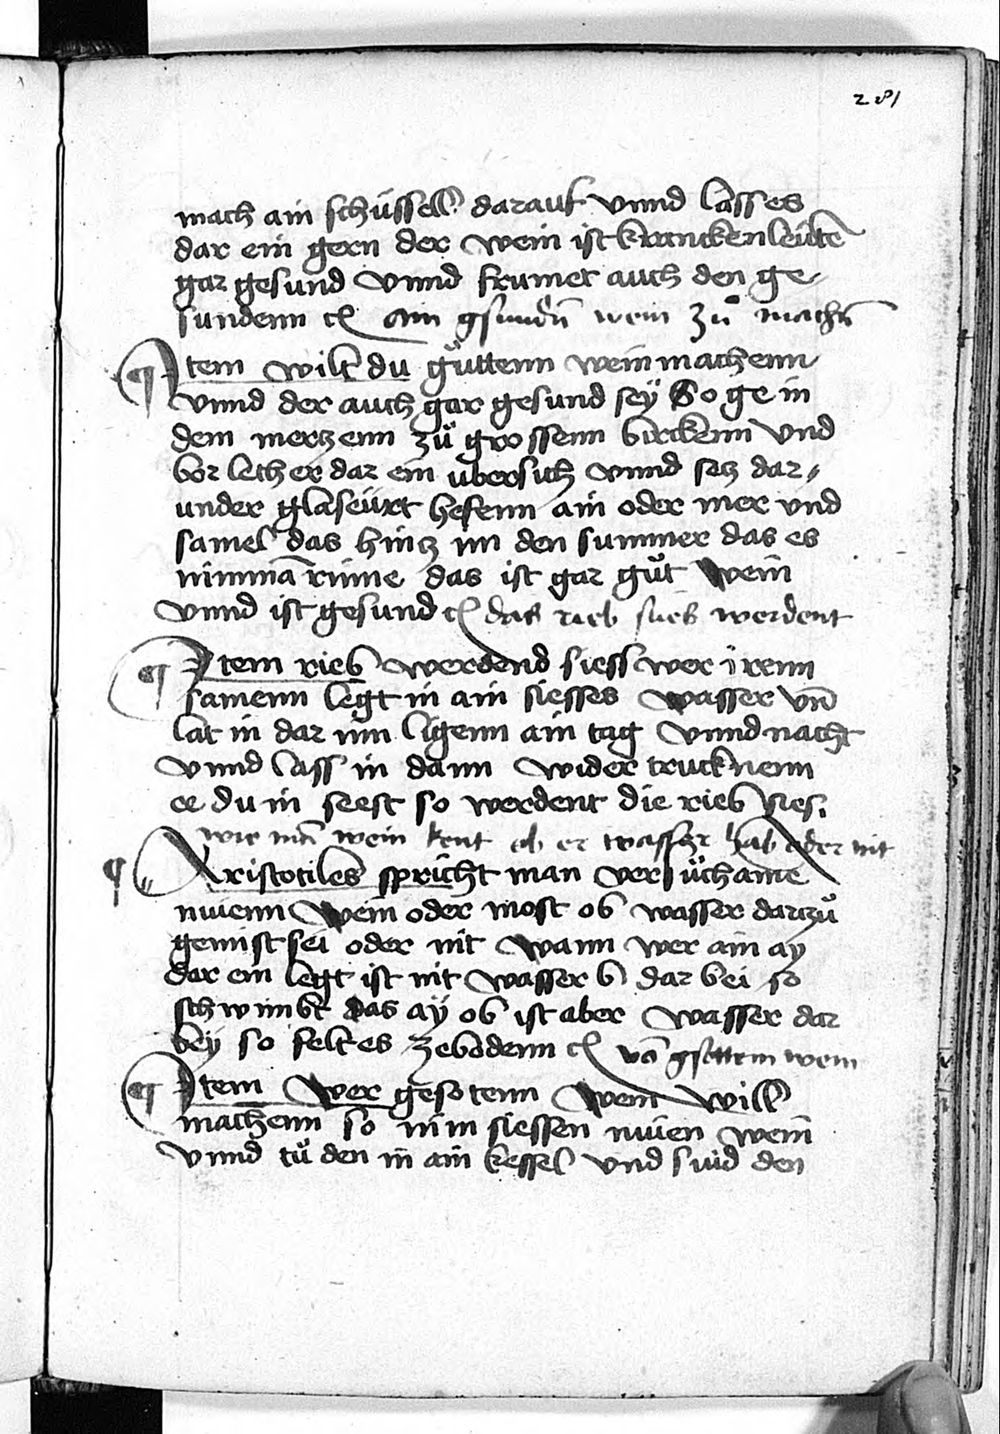 281
mach ain schüssell darauf vnnd lasses
dar ein gern der wein ist kranckenleüte
gar gesund vnnd frumet auch den ge-
sundenn ain gsundñ wein zů machñ
¶ Item wilt du gůttenn wein machenn
vnnd der auch gar gesund seÿ So ge in
dem mertzenn zů grossenn birckenn vnd
bor lecher dar ein übersich vnnd setz dar-
under glaseürt hefenn ain oder mer vnd
samel das hintz im den summer das es
nimmā rinne das ist gar gůt wein
vnnd ist gesund das rieb sües werdent
¶ Item rieb werdend siess wer irenn
samenn legt in ain siesses wasser vñ
lat in dar inn ligenn ain tag vnnd nacht
vnnd lass in dann wider trucknenn
ee du in seest so werdent die rieb sies.
wie mā wein kent ob er wasser hab oder nit
¶ Aristotiles spricht man versůch aine
nuienn wein oder most ob wasser darzů
gemist sei oder nit wann wer ain ay
dar ein legt ist nit wasser dar bei so
schwimbt das aÿ ob ist aber wasser dar
beÿ so felt es zebodenn vō gsottem wein
¶ Item wer gesotenn wein will
machenn so nim siessen nuien wein
vnnd tů den in ain kessel vnd suid den